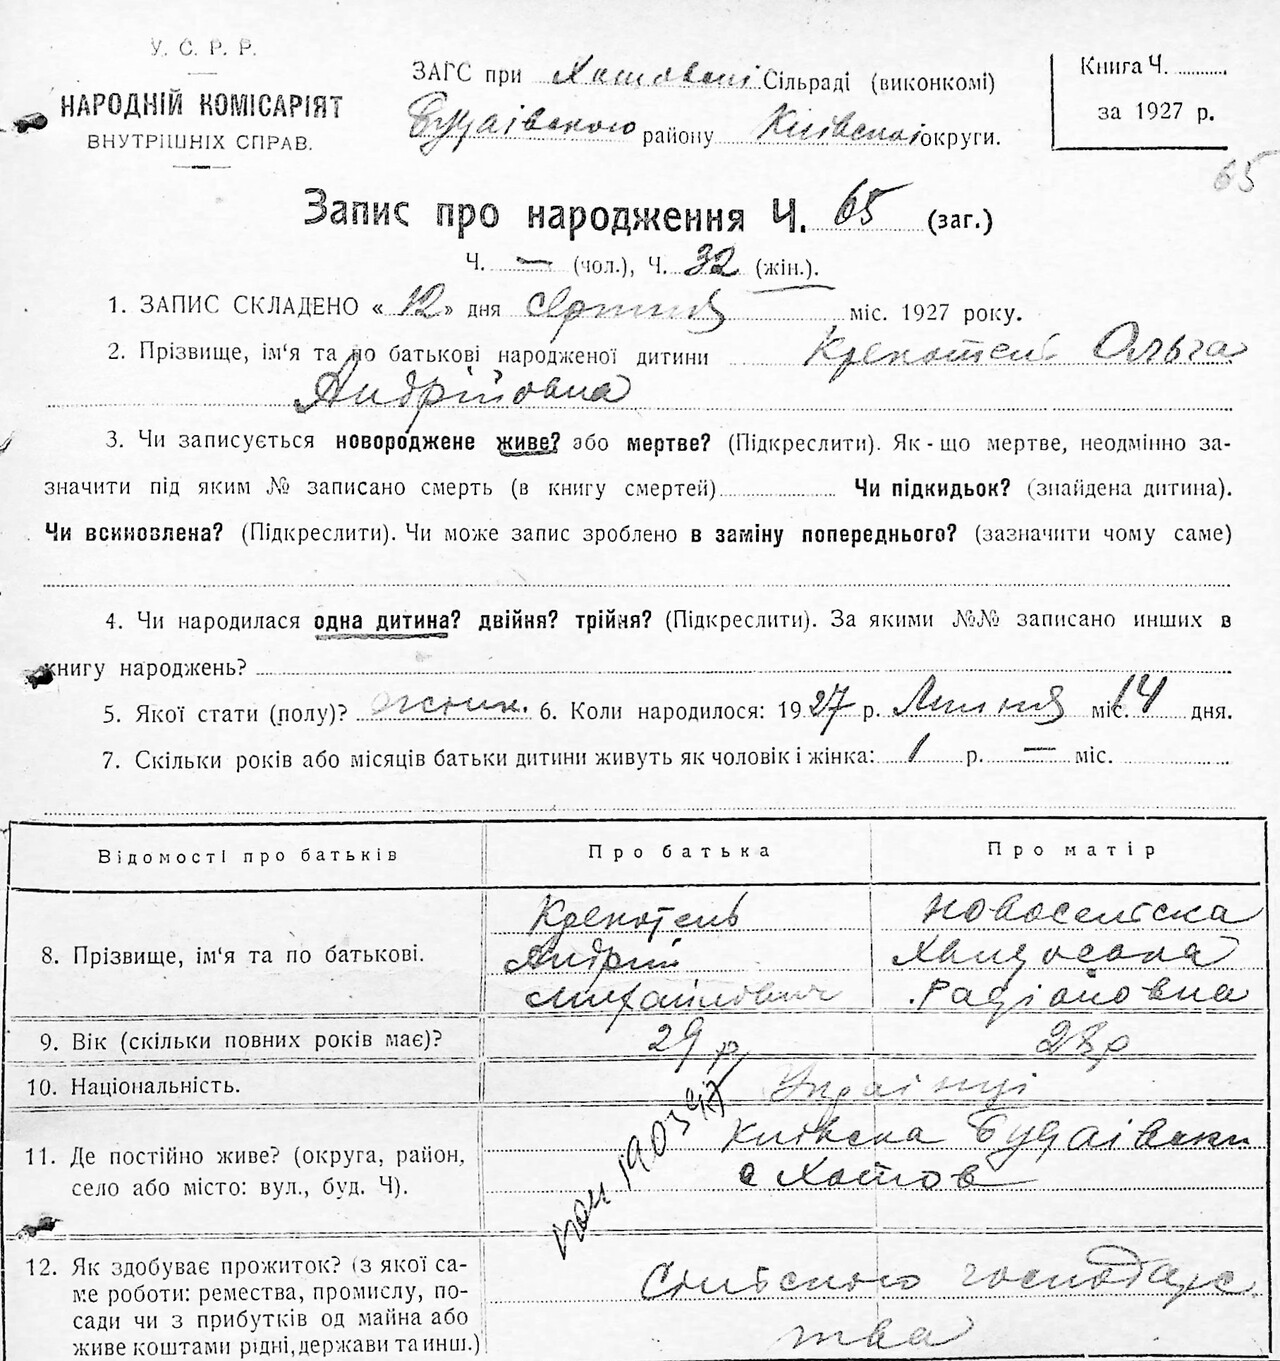 У. С. Р. Р.
НАРОДНІЙ КОМІСАРІЯТ
ВНУТРІШНІХ СПРАВ.
ЗАГС при Хотовській Сільраді (виконкомі)
Будаївського району Київської округи.
Книга Ч. ..........
за 1927 р.
65
Запис про народження Ч. 65 (заг.)
Ч. — (чол.), Ч. 32 (жін.).
1. ЗАПИС СКЛАДЕНО « 12 » дня серпня міс. 1927 року.
2. Прізвище, ім‘я та по батькові народженої дитини Крекотень Ольга
Андрійовна
3. Чи записується новороджене живе? або мертве? (Підкреслити). Як-що мертве, неодмінно за-
значити під яким № записано смерть (в книгу смертей).......... Чи підкидьок? (знайдена дитина).
Чи всиновлена? (Підкреслити). Чи може запис зроблено в заміну попереднього? (зазначити чому саме)
4. Чи народилася одна дитина? двійня? трійня? (Підкреслити). За якими №№ записано инших в
книгу народжень?
5. Якої стати (полу)? жіноч. 6. Коли народилося: 1927 р. Липня міс. 14 дня.
7. Скільки років або місяців батьки дитини живуть як чоловік і жінка: 1 р. — міс.
Відомості про батьків Про батька Про матір
8. Прізвище, ім‘я та по батькові.
Крекотень
Андрій
Михайлович
Новосельська
Радіоновна
9. Вік (скільки повних років має)? 29 р. 28 р
10. Національність. Українці
11. Де постійно живе? (округа, район,
село або місто: вул., буд. Ч).
Київська Будаївськ
с Хотов
12. Як здобуває прожиток? (з якої са-
ме роботи: ремества, промислу, по-
сади чи з прибутків од майна або
живе коштами рідні, держави та инш.)
Сільського господарс
тва